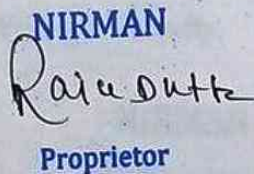 NIRMAN
Raju Dutta
Proprietor